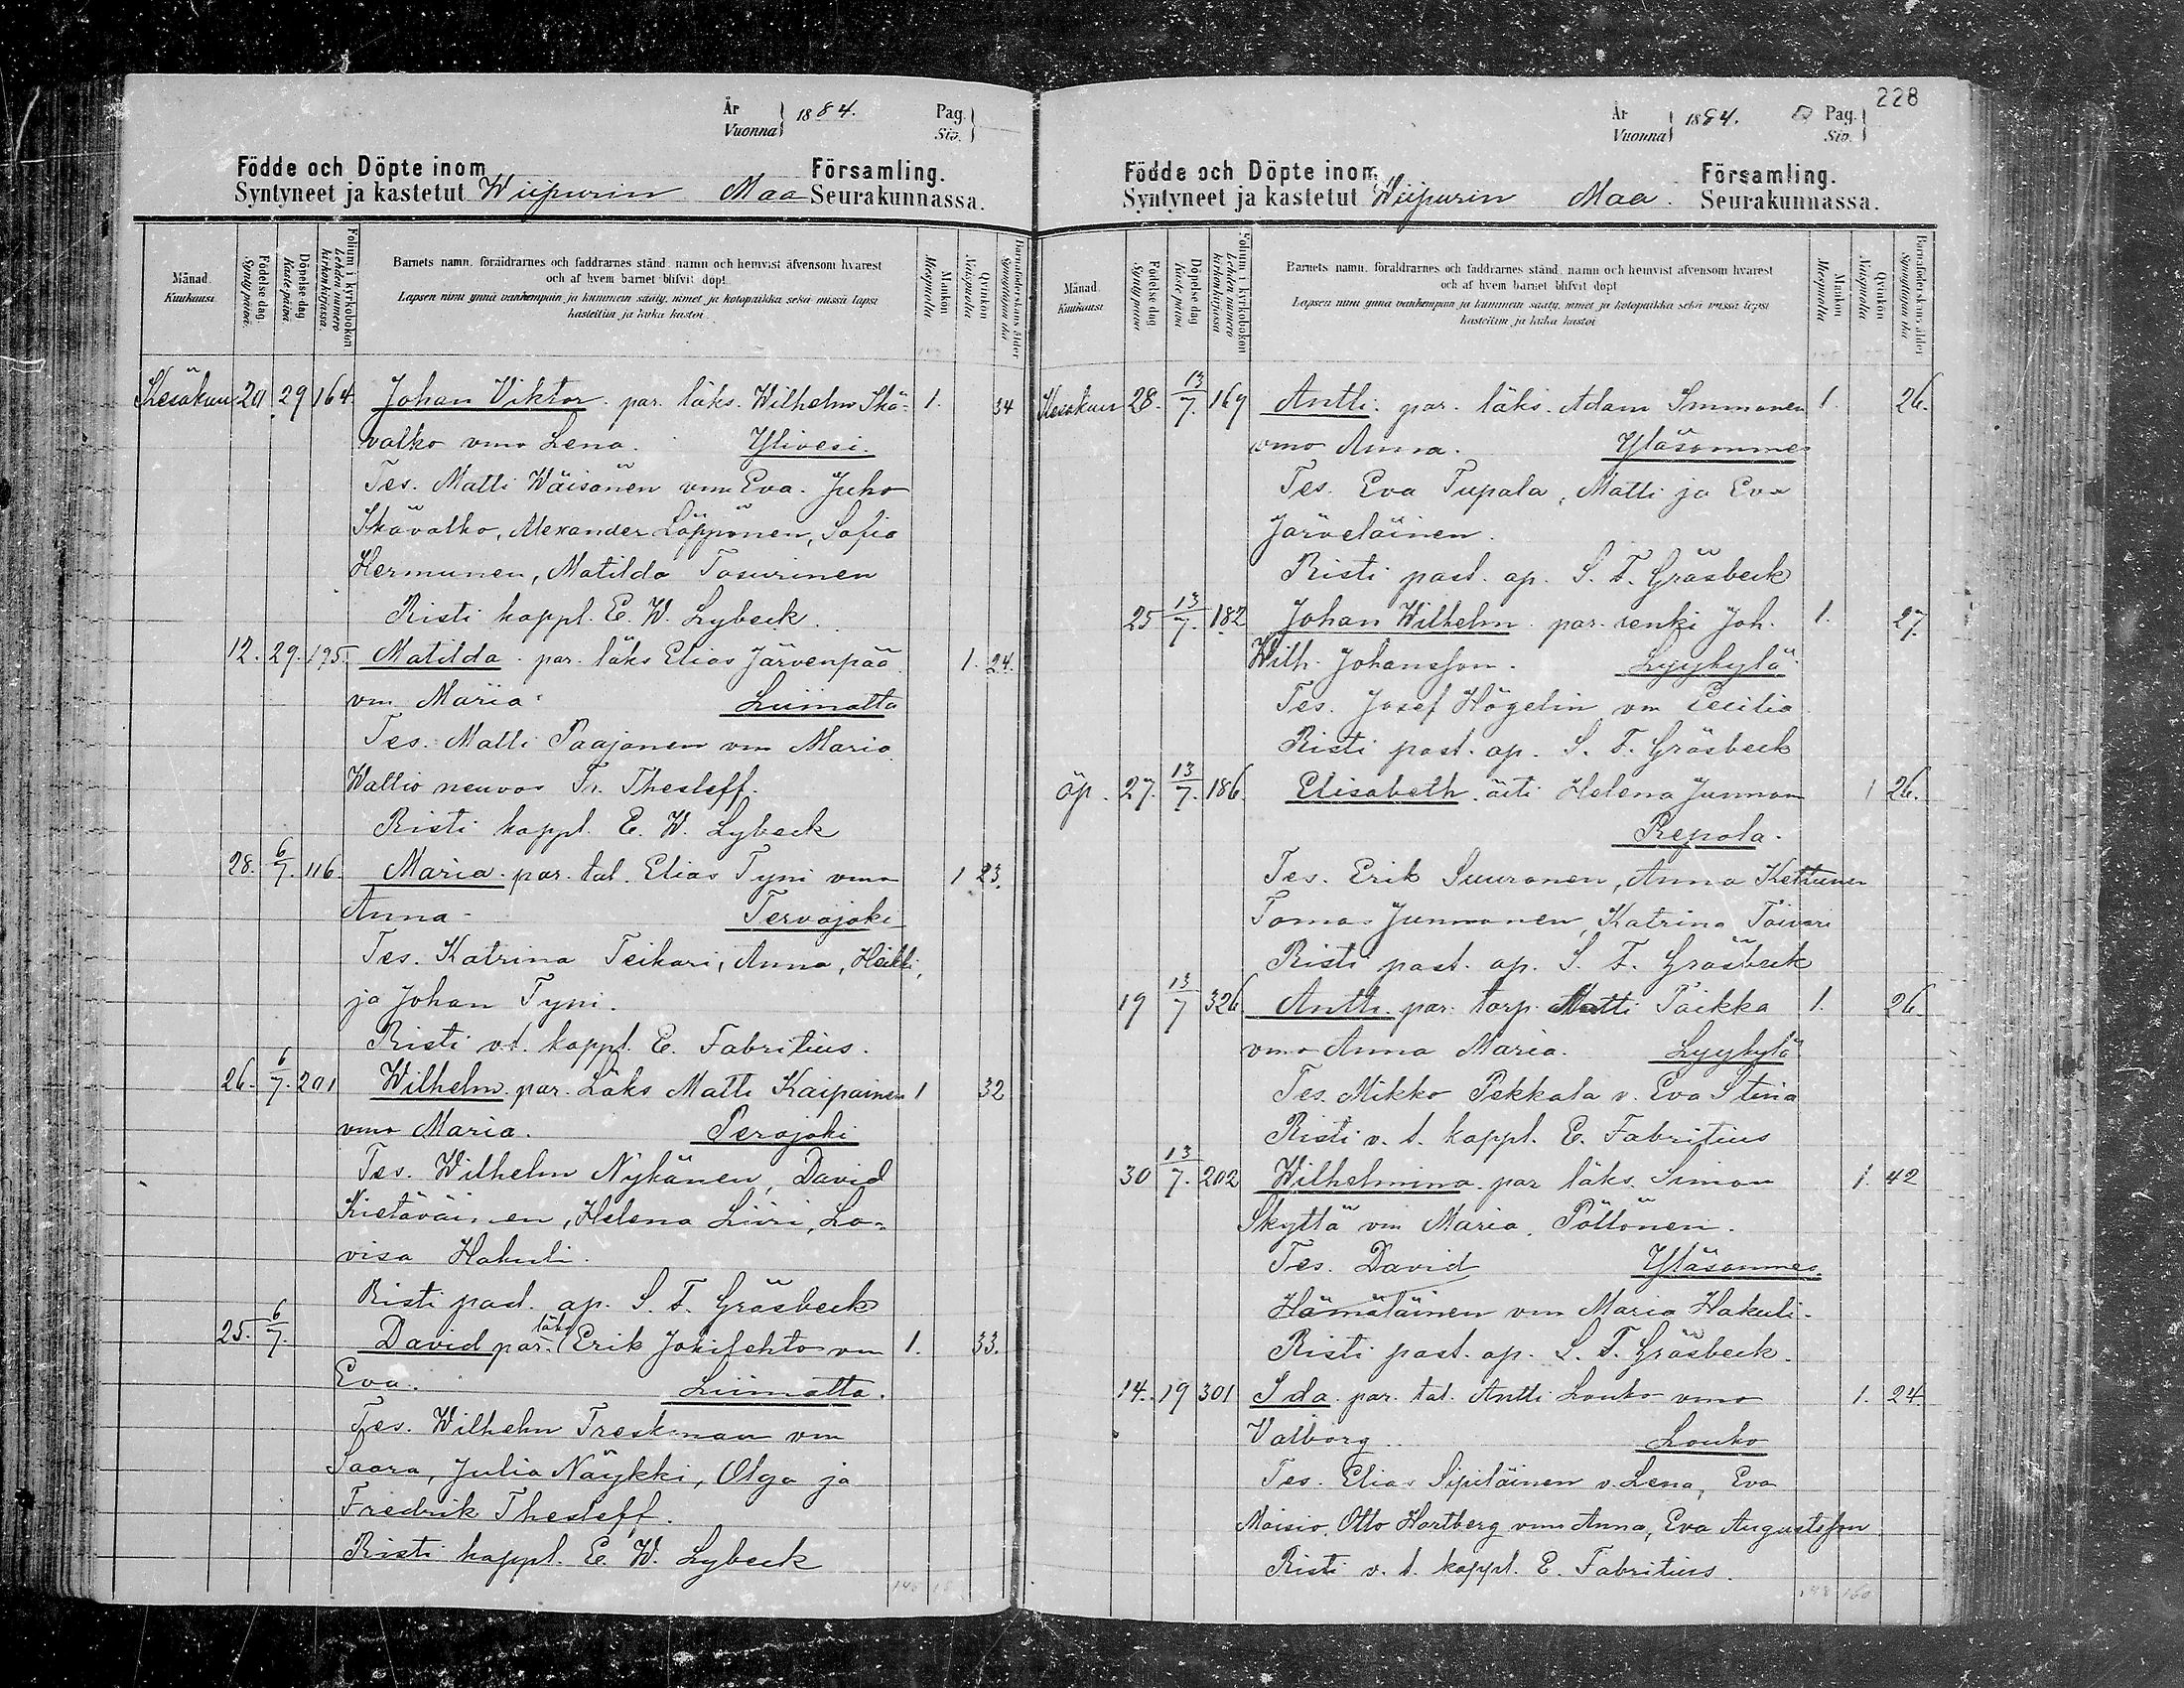 År
Vuonna
1884.
Pag.
Siv.
Födde och Döpte inom Församling.
Syntyneet ja kastetut Wiipurin Maa Seurakunnassa.
Månad.
Kuukausi
Födelse dag.
Synty päivä.
Döpelse dag
Kaste päivä
Folium i kyrkoboken
Lehden numero kirkonkirjassa.
Barnets namn, föräldrarnes och faddrarnes stånd, namn och hemvist äfvensom hvarest
och af hvem barnet blifvit döpt
Lapsen nimi ynnä vanhempain ja kummein sääty, nimet ja kotopaikka sekä missä lapsi
kastettiin ja kuka kastoi
Mankön
Miespuolia
Qvinkön
Naispuolia
Barnaföderskans ålder
Synnyttäjän ikä
Kesäkuu 20 29 164 Johan Viktor. par. läks. Wilhelm Skä- 1. 34
valko vmo Lena. Ylivesi.
Tes. Matti Wäisänen vmo Eva. Juho
Skävalko, Alexander Läppönen, Sofia
Hermunen, Matilda Tasurinen
Risti kappl. E. W. Lybeck.
12. 29. 195. Matilda. par. läks Elias Järvenpää 1. 24.
vm Maria. Liimatta
Tes. Matti Paajanen vm Maria
Waltio neuvos Fr. Thesleff.
Risti kappl. E. W. Lybeck
28. 6/7. 116. Maria. par. tal. Elias Tyni vmo 1 23.
Anna. Tervajoki
Tes. Katrina Teikari, Anna, Heikki,
ja Johan Tyni.
Risti v.t. kappl. E. Fabritius.
26. 6/7. 201 Wilhelm. par. Läks Matti Kaipainen 1 32
vmo Maria. Perojoki
Tes. Wilhelm Nykänen, David
Kietäväinen, Helena Liiri, Lo-
visa Hakuli.
Risti past. ap. S. F. Gräsbeck
25. 6/7. David par. läks Erik Jokilehto vm 1. 33.
Eva. Liimatta.
Tes. Wilhelm Treskman vm
Saara, Julia Näykki, Olga ja
Fredrik Thesleff.
Risti kappl. E. W. Lybeck
228
År
Vuonna
1884.
Pag.
Siv.
Födde och Döpte inom Församling.
Syntyneet ja kastetut Wiipurin Maa. Seurakunnassa.
Månad.
Kuukausi
Födelse dag
Synty päivä
Döpelse dag
Kaste päivä
Folium i kyrkoboken
Lehden numero kirkonkirjassa
Barnets namn, föräldrarnes och faddrarnes stånd, namn och hemvist äfvensom hvarest
och af hvem barnet blifvit döpt
Lapsen nimi ynnä vanhempain ja kummein sääty, nimet ja kotopaikka sekä missä lapsi
kastettiin ja kuka kastoi
Mankön
Miespuolia
Qvinkön
Naispuolia
Barnaföderskans ålder
Synnyttäjän ikä
Kesäkuu 28. 13/7. 169 Antti. par. läks. Adam Immonen 1. 26.
vmo Anna. Yläsommee
Tes. Eva Tupala, Matti ja Eva
Järveläinen.
Risti past. ap. S. F. Gräsbeck
25 13/7. 182 Johan Wilhelm. par. renki Joh. 1. 27.
Wilh. Johansson. Lyykylä.
Tes. Josef Högelin vm Cecilia
Risti past. ap. S. F. Gräsbeck
äp. 27. 13/7. 186. Elisabeth. äiti Helena Junnon 1 26.
Repola.
Tes. Erik Suuronen, Anna Kettunen
Tomas Junnonen, Katrina Toivari
Risti past. ap. S. F. Gräsbeck
19 13/7 326 Antti. par. torp. Matti Paikka 1. 26.
vmo Anna Maria. Lyykylä
Tes. Mikko Pekkala v. Eva Stina
Risti v. t. kappl. E. Fabritius
30 13/7. 202 Wilhelmina. par läks. Simon 1. 42
Skyttä vm Maria Pöllönen.
Tes. David Yläsommee.
Hämäläinen vm Maria Hakuli.
Risti past. ap. S. F. Gräsbeck.
14. 19 301 Ida. par. tal. Antti Louko vmo 1. 24.
Valborg. Louko
Tes. Elias Sipiläinen v. Lena, Eva
Moisio, Otto Hartberg vmo Anna, Eva Augustsson
Risti v. t. kappl. E. Fabritius.